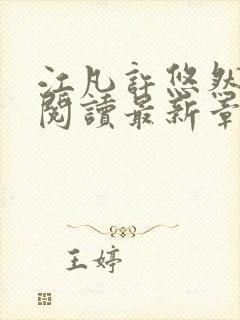 江凡許悠然
閱讀最新章
王婷